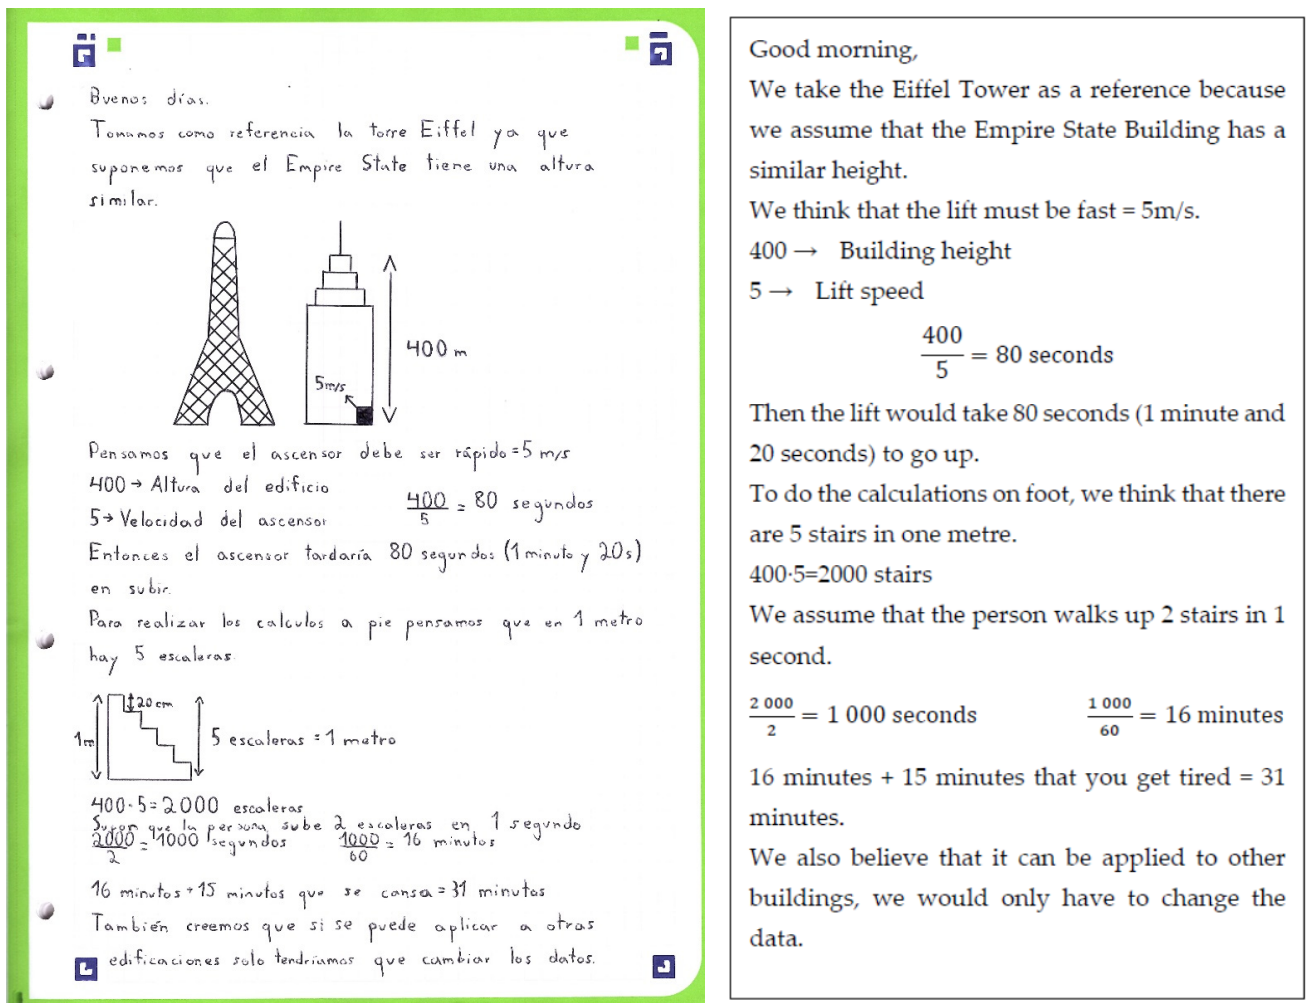 Buenos días.
Tomamos como referencia la torre Eiffel ya que
suponemos que el Empire State tiene una altura
similar.
400 m
5m/s
Pensamos que el ascensor debe ser rápido = 5 m/s
400 → Altura del edificio
5 → Velocidad del ascensor
400/5 = 80 segundos
Entonces el ascensor tardaría 80 segundos (1 minuto y 20s)
en subir.
Para realizar los calculos a pie pensamos que en 1 metro
hay 5 escaleras.
20 cm
1m
5 escaleras = 1 metro
400·5=2000 escaleras
que la persona sube 2 escaleras en 1 segundo
2000/2 = 1000 segundos 1000/60 = 16 minutos
16 minutos + 15 minutos que se cansa = 31 minutos
También creemos que si se puede aplicar a otras
edificaciones solo tendríamos que cambiar los datos.
Good morning,
We take the Eiffel Tower as a reference because
we assume that the Empire State Building has a
similar height.
We think that the lift must be fast = 5m/s.
400 → Building height
5 → Lift speed
400/5 = 80 seconds
Then the lift would take 80 seconds (1 minute and
20 seconds) to go up.
To do the calculations on foot, we think that there
are 5 stairs in one metre.
400·5=2000 stairs
We assume that the person walks up 2 stairs in 1
second.
2 000/2 = 1 000 seconds 1 000/60 = 16 minutes
16 minutes + 15 minutes that you get tired = 31
minutes.
We also believe that it can be applied to other
buildings, we would only have to change the
data.